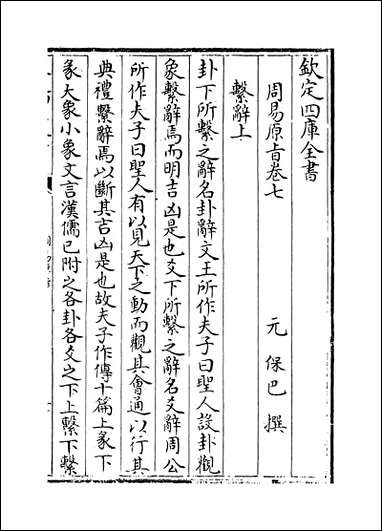 欽定四庫全書
周易原旨卷七
元 保巴 撰
繫辭上
卦下所繫之辭名卦辭文王所作夫子曰聖人設卦觀
象繫辭焉而明吉凶是也爻下所繫之辭名爻辭周公
所作夫子曰聖人有以見天下之動而觀其會通以行其
典禮繫辭焉以斷其吉凶是也故夫子作傳十篇上彖下
彖大象小象文言漢儒已附之各卦各爻之下上繫下繫